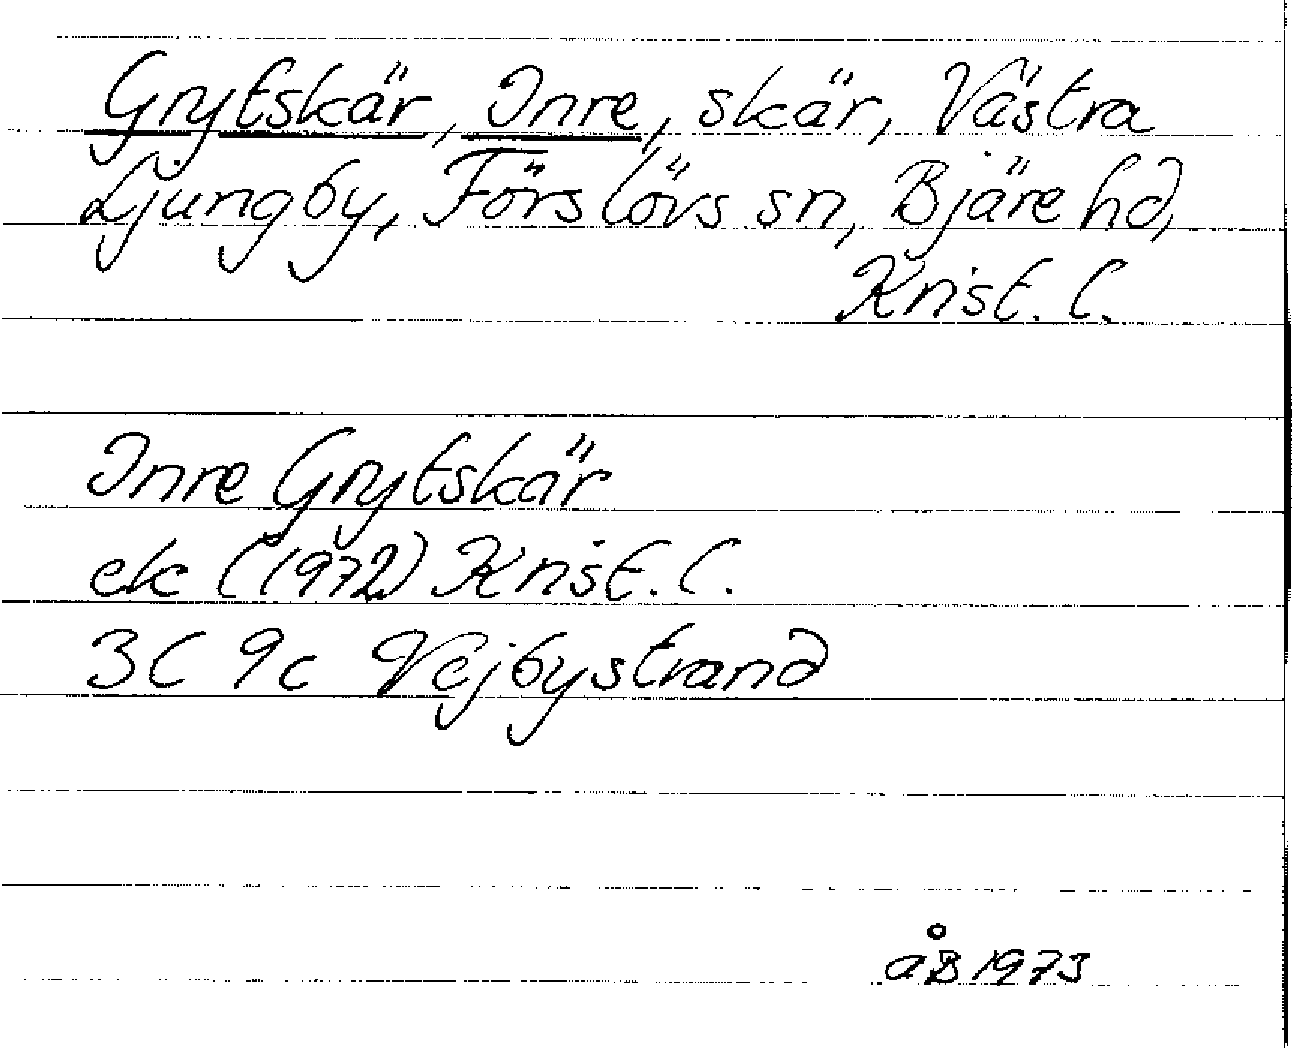 Grytskär, Inre, skär, Västra
Ljungby, Förslövs sn, Bjäre hd,
Krist. l.
Inre Grytskär
ek (1972) Krist. l.
3C 9c Vejbystrand
åB 1973